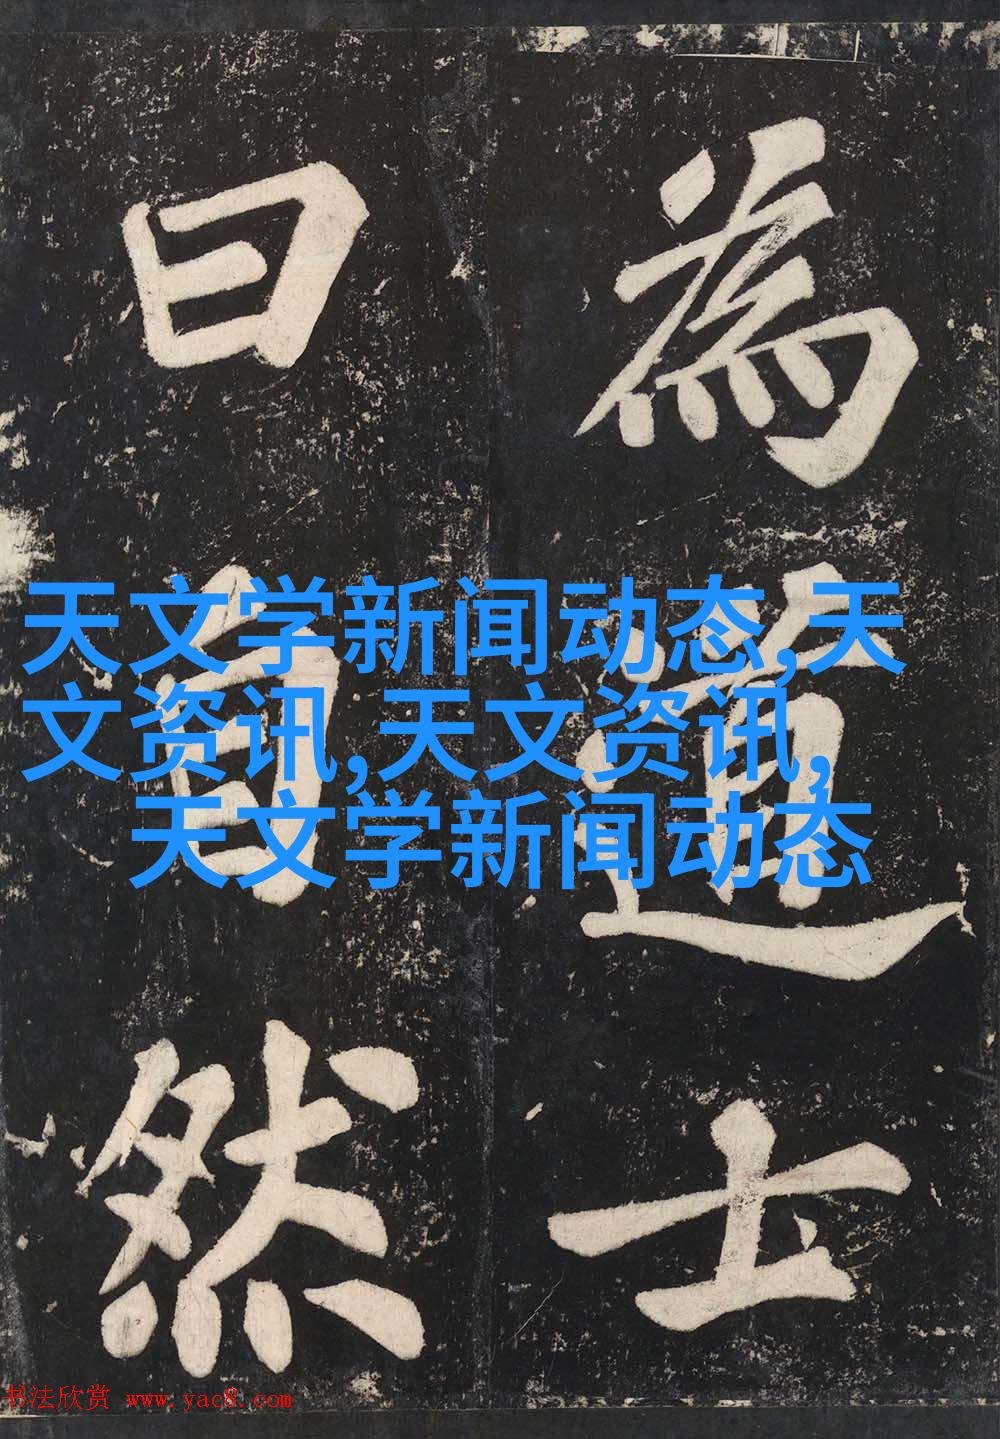 為道士
曰自然
天文学新闻动态,天
文资讯,天文资讯,
天文学新闻动态
书法欣赏 www.yac8.com